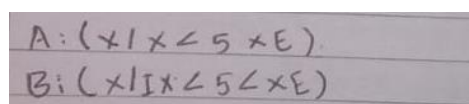 A: (x/x < 5 xE).
B: (x/Ix < 5 < xE)